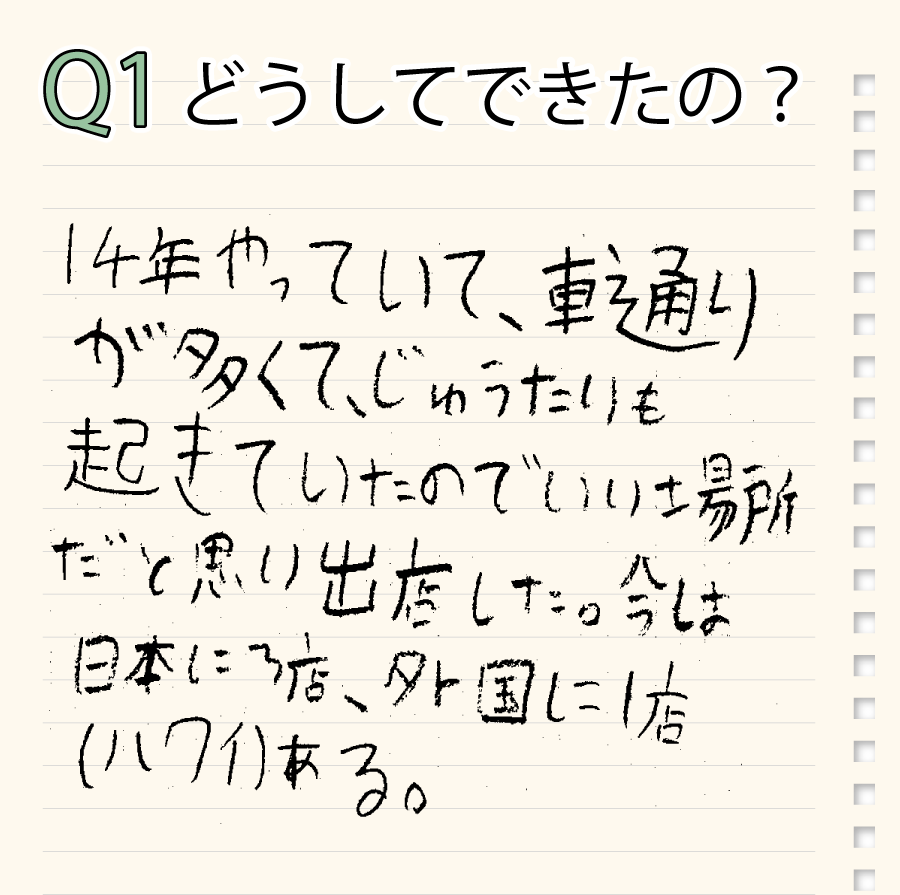 Q1 どうしてできたの？
14年やっていて、車通り
が多くて、じゅうたりも
起きていたのでいい土場所
だと思い出店した。今は
日本に3店、外国に1店
(ハワイ)ある。